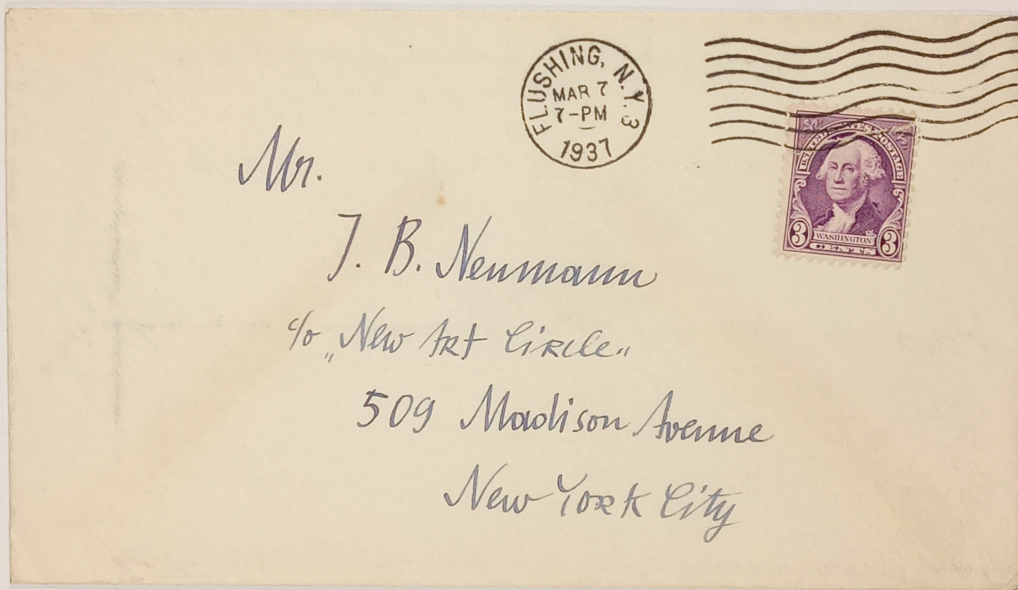 FLUSHING, N.Y. 3
MAR 7
7-PM
1937
UNITED STATES POSTAGE
3 WASHINGTON 3
CENTS
Mr.
J. B. Neumann
c/o „New Art Circle"
509 Madison Avenue
New York City